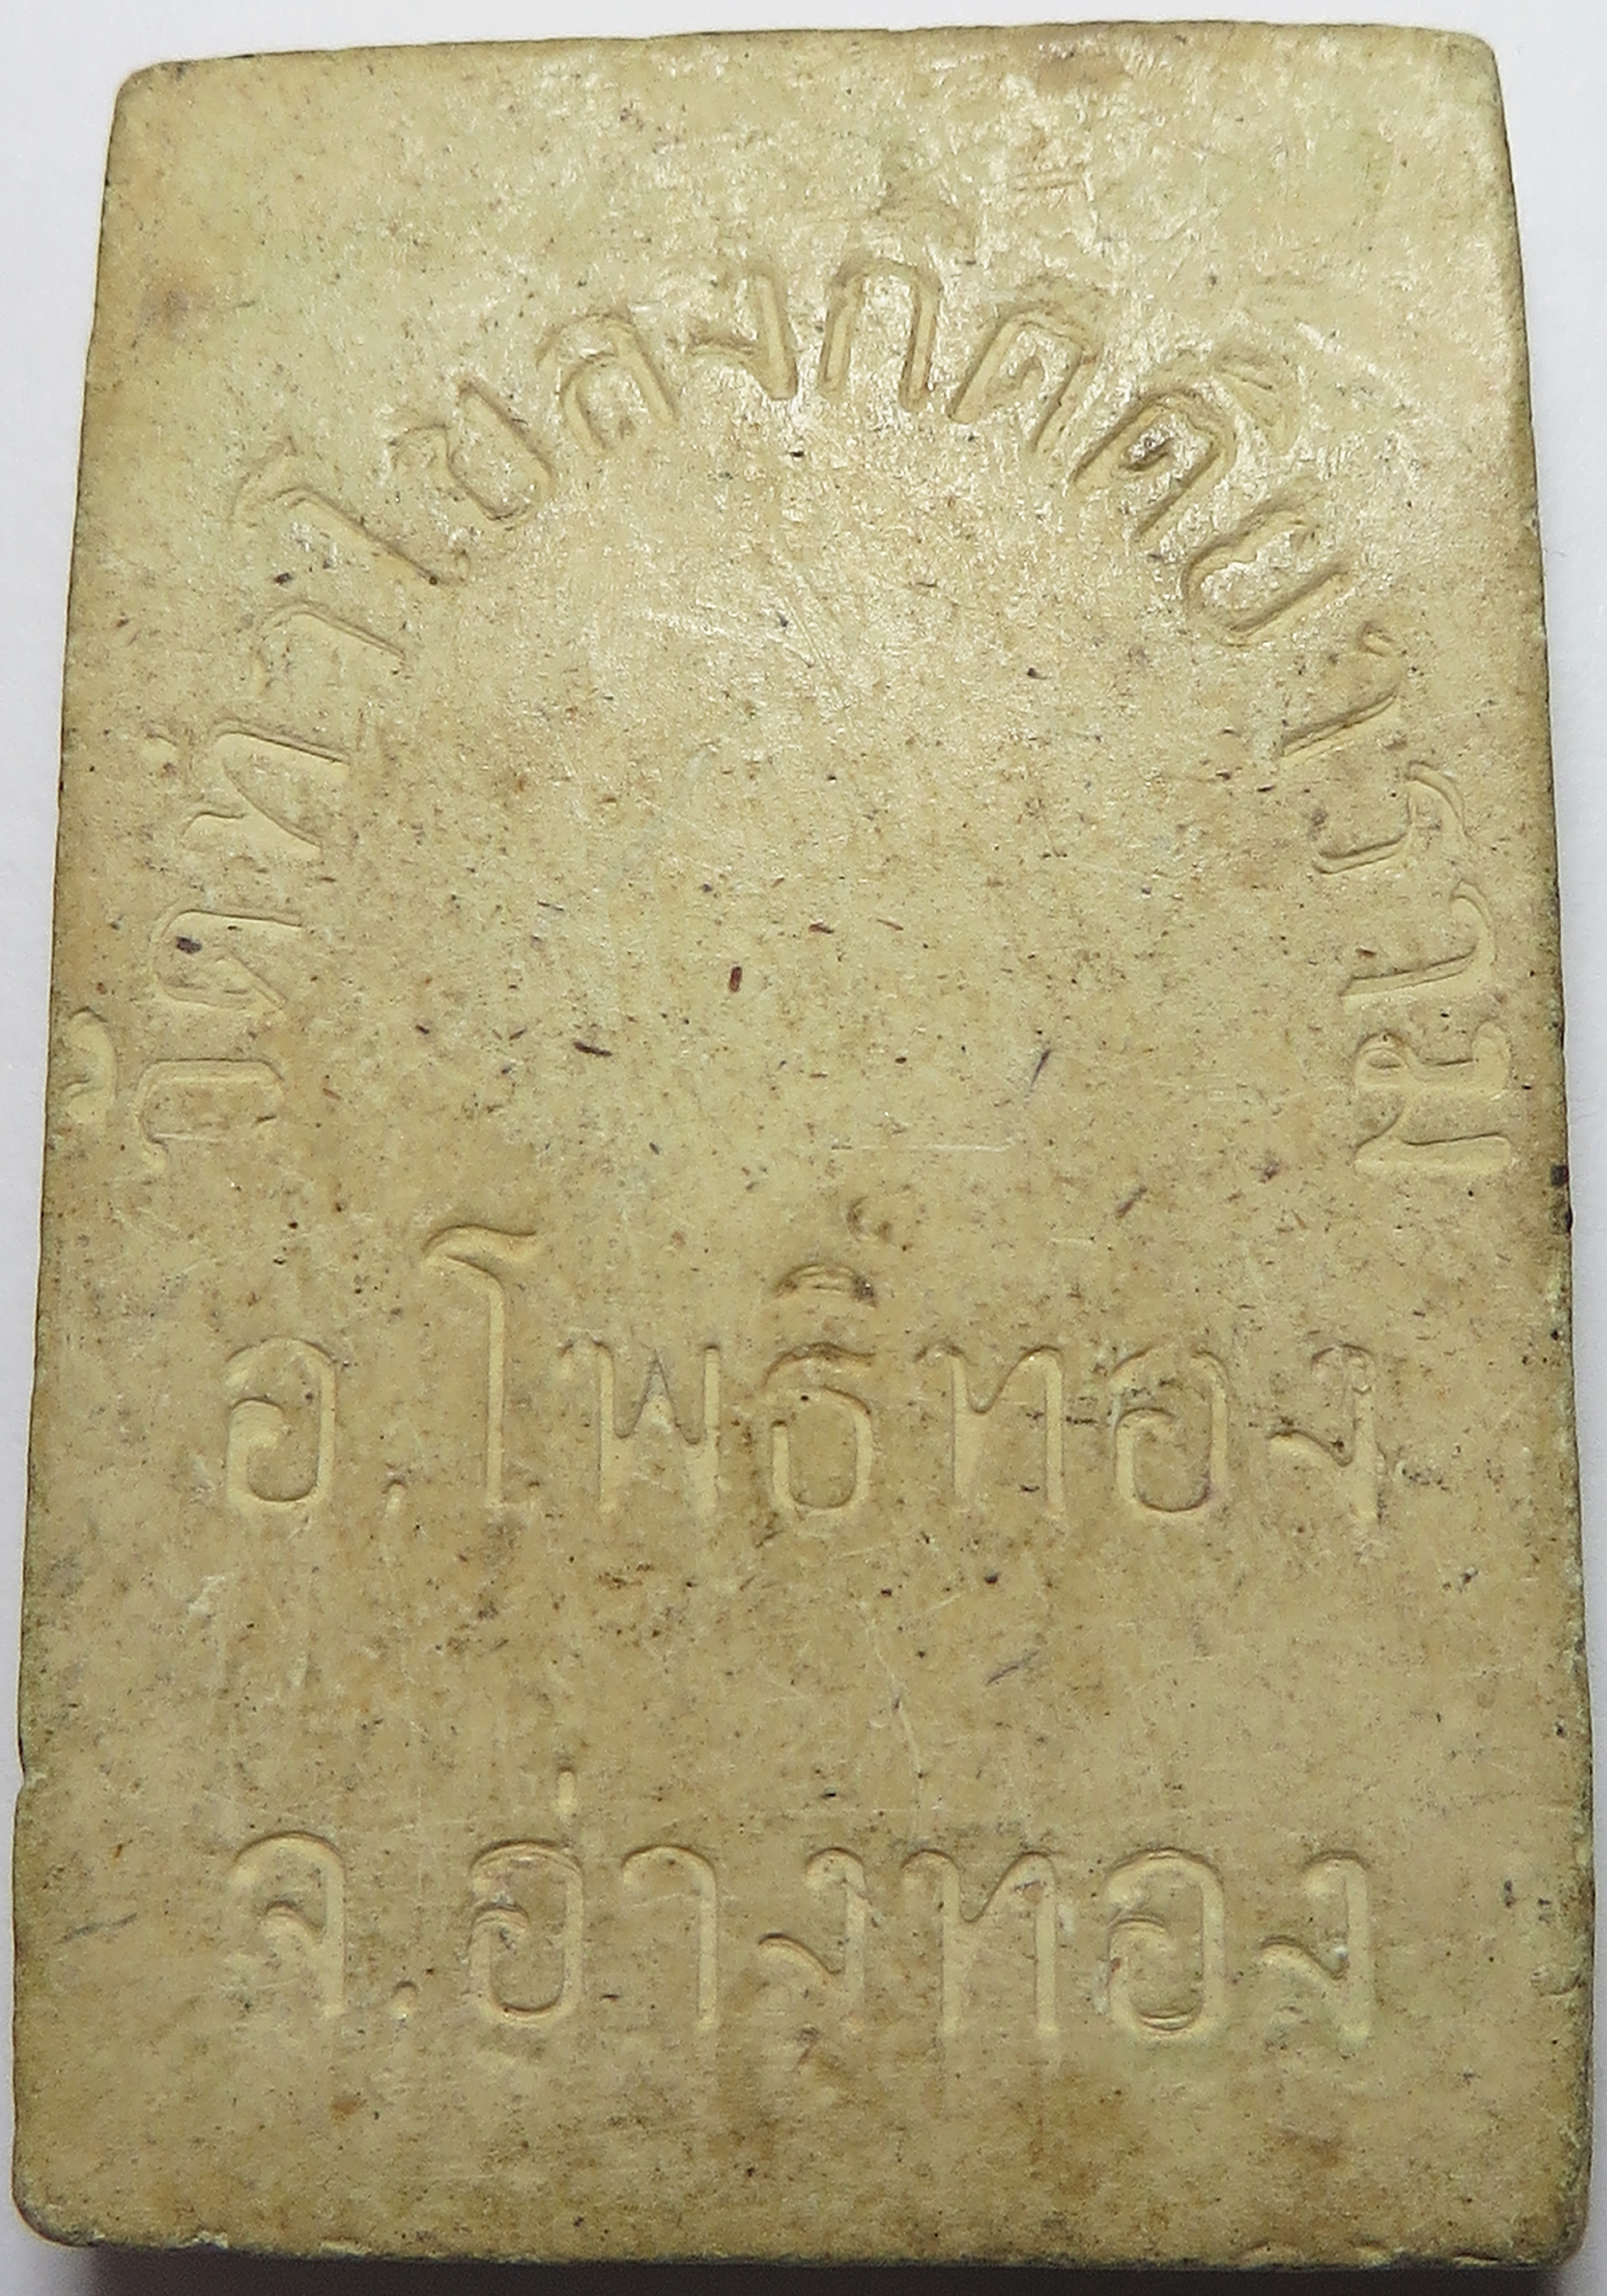 วัดท่าโขลงกิตติยาราม
อ.โพธิ์ทอง
จ.อ่างทอง